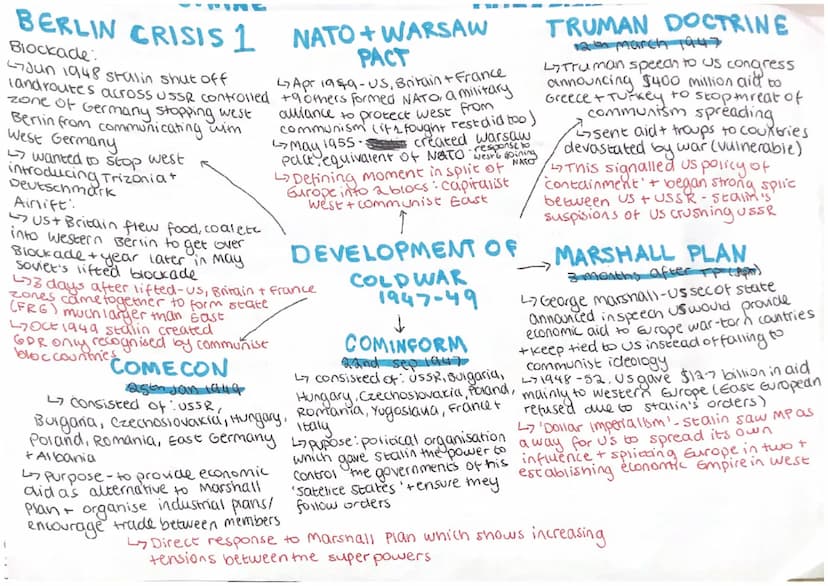 BERLIN CRISIS 1
Blockade:
↳Jun 1948 stalin shut off
landroutes across USSR controlled
zone of Germany stopping west
Berlin from communicating with
West Germany
↳ wanted to stop west
introducing Trizonia +
Deutschmark
Airlift:
↳US + Britain flew food, coal etc
into Western Berlin to get over
Blockade + year later in May
soviet's lifted blockade
↳3 days after lifted - US, Britain + France
zones came together to form state
(FRG) much larger than East
↳Oct 1949 stalin created
GDR only recognised by communist
bloc countries
NATO + WARSAW
PACT
↳Apr 1949 - US, Britain + France
+ 9 others formed NATO, a military
alliance to protect west from
communism (if 1 fought rest did too)
↳May 1955 - created Warsaw
Pact, equivalent of NATO - response to
west G joining
NATO
↳Defining moment in split of
Europe into 2 blocs: capitalist
west + communist East
TRUMAN DOCTRINE
12th March 1947
↳Truman speech to US congress
announcing $400 million aid to
Greece + Turkey to stop threat of
communism spreading
↳sent aid + troups to countries
devastated by war (vulnerable)
↳This signalled US policy of
'containment' + began strong split
between US + USSR - Stalin's
suspisions of US crushing USSR
DEVELOPMENT OF
COLD WAR
1947-49
MARSHALL PLAN
3 months after TD
↳George marshall - US sec of state
announced in speech US would provide
economic aid to Europe war-torn countries
+ keep tied to US instead of falling to
communist ideology
↳1948-52, US gave $12.7 billion in aid
mainly to western Europe (East European
refused due to stalin's orders)
↳'Dollar imperialism' - stalin saw MP as
a way for US to spread its own
influence + splitting Europe in two +
establishing economic Empire in west
COMECON
25th Jan 1949
↳ consisted of: USSR,
Bulgaria, Czechoslovakia, Hungary,
Poland, Romania, East Germany
+ Albania
↳Purpose - to provide economic
aid as alternative to Marshall
Plan + organise industrial plans/
encourage trade between members
↳Direct response to Marshall Plan which shows increasing
tensions between the superpowers
COMINFORM
22nd sep 1947
↳ consisted of: USSR, Bulgaria,
Hungary, Czechoslovakia, Poland,
Romania, Yugoslavia, France +
Italy
↳Pupose: political organisation
which gave stalin the power to
control the governments of his
'satelice states' + ensure they
follow orders